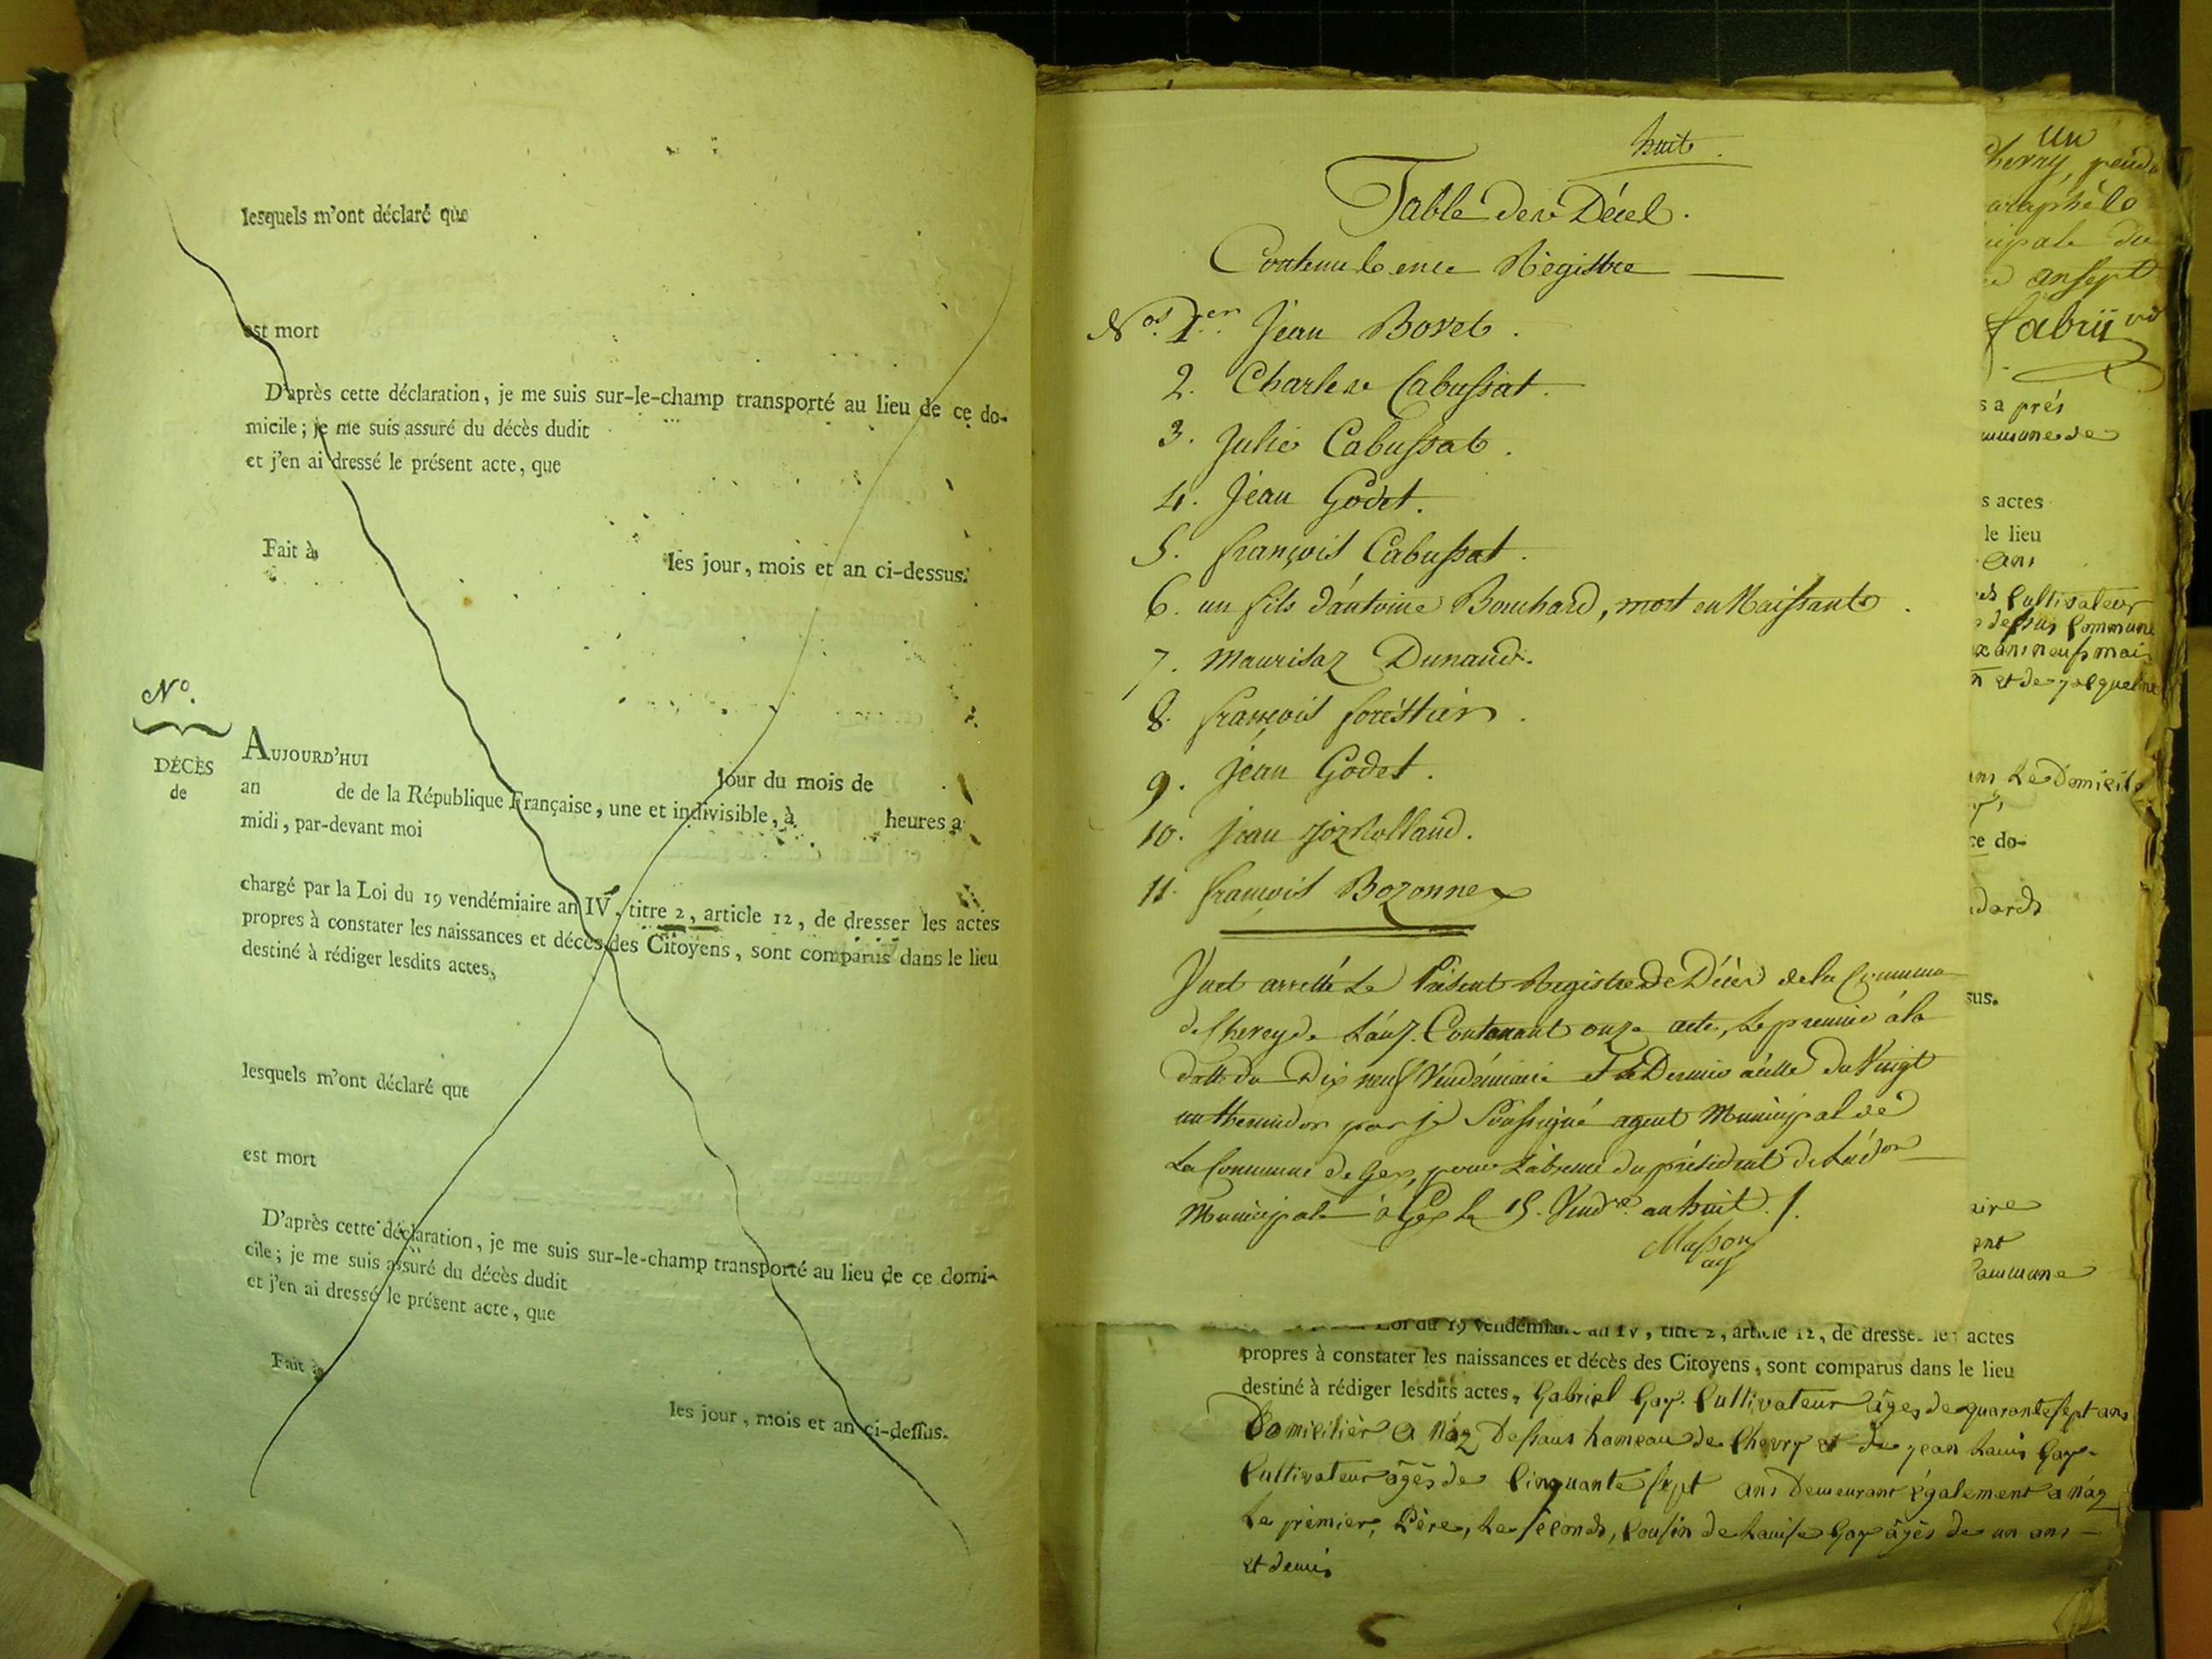 lesquels m'ont déclaré que
est mort
D'après cette déclaration, je me suis sur-le-champ transporté au lieu de ce do-
micile; je me suis assuré du décès dudit
et j'en ai dressé le présent acte, que
Fait à les jour, mois et an ci-dessus.
N°.
DÉCÈS
de
AUJOURD'HUI jour du mois de
an de de la République Française, une et indivisible, à heures a
midi, par-devant moi
chargé par la Loi du 19 vendémiaire an IV, titre 2, article 12, de dresser les actes
propres à constater les naissances et décès des Citoyens, sont comparus dans le lieu
destiné à rédiger lesdits actes,
lesquels m'ont déclaré que
est mort
D'après cette déclaration, je me suis sur-le-champ transporté au lieu de ce domi-
cile; je me suis assuré du décès dudit
et j'en ai dressé le présent acte, que
Fait à
les jour, mois et an ci-dessus.
huit.
Table des Décès.
Contenus en ce Régistre
Nos. 1er. Jean Bovet.
2. Charles Cabussat.
3. Julie Cabussat.
4. Jean Godet.
5. françois Cabussat.
6. un fils d'antoine Bouchard, mort en Naissant.
7. Maurisaz Dunand.
8. françois foréstier.
9. Jean Godet.
10. Jean Joz Rolland.
11. françois Bozonnex
arretté Le Présent Registre De Décès de la Commune
de Chevry de Contenant onze acte, Le premier à la
datte du Dix neuf Vendémiaire et Le Dernier à celle du Vingt
un thermidor par je Soussigné agent Municipal de
La Commune de Gex, pour L'absence du président de
Municipale à Gex Le 15. Vendre. an huit.
Masson
ag
Loi du 19 vendémiaire an IV, titre 2, article 12, de dresser les actes
propres à constater les naissances et décès des Citoyens, sont comparus dans le lieu
destiné à rédiger lesdits actes, Gabriel Gay. Cultivateur âgés de quarante sept ans
Domicilièr a Náz Dessous hameau de Chevry et du jean Louis Gay.
Cultivateur âgés de Cinquante sept ans Demeurant également a náz
Le prémier, Père, Le seconds, Cousin de Louise Gay âgés de un ans
et demis
un
Chevry, pend
araphé
cipale du
an sept
fabrij
s a prés
mmune de
s actes
le lieu
ans
Cultivateur
dessus Commune
ans neufs moi
n et de jacqueline
Le Domicile
ce do-
sus.
aire
ent
Commune